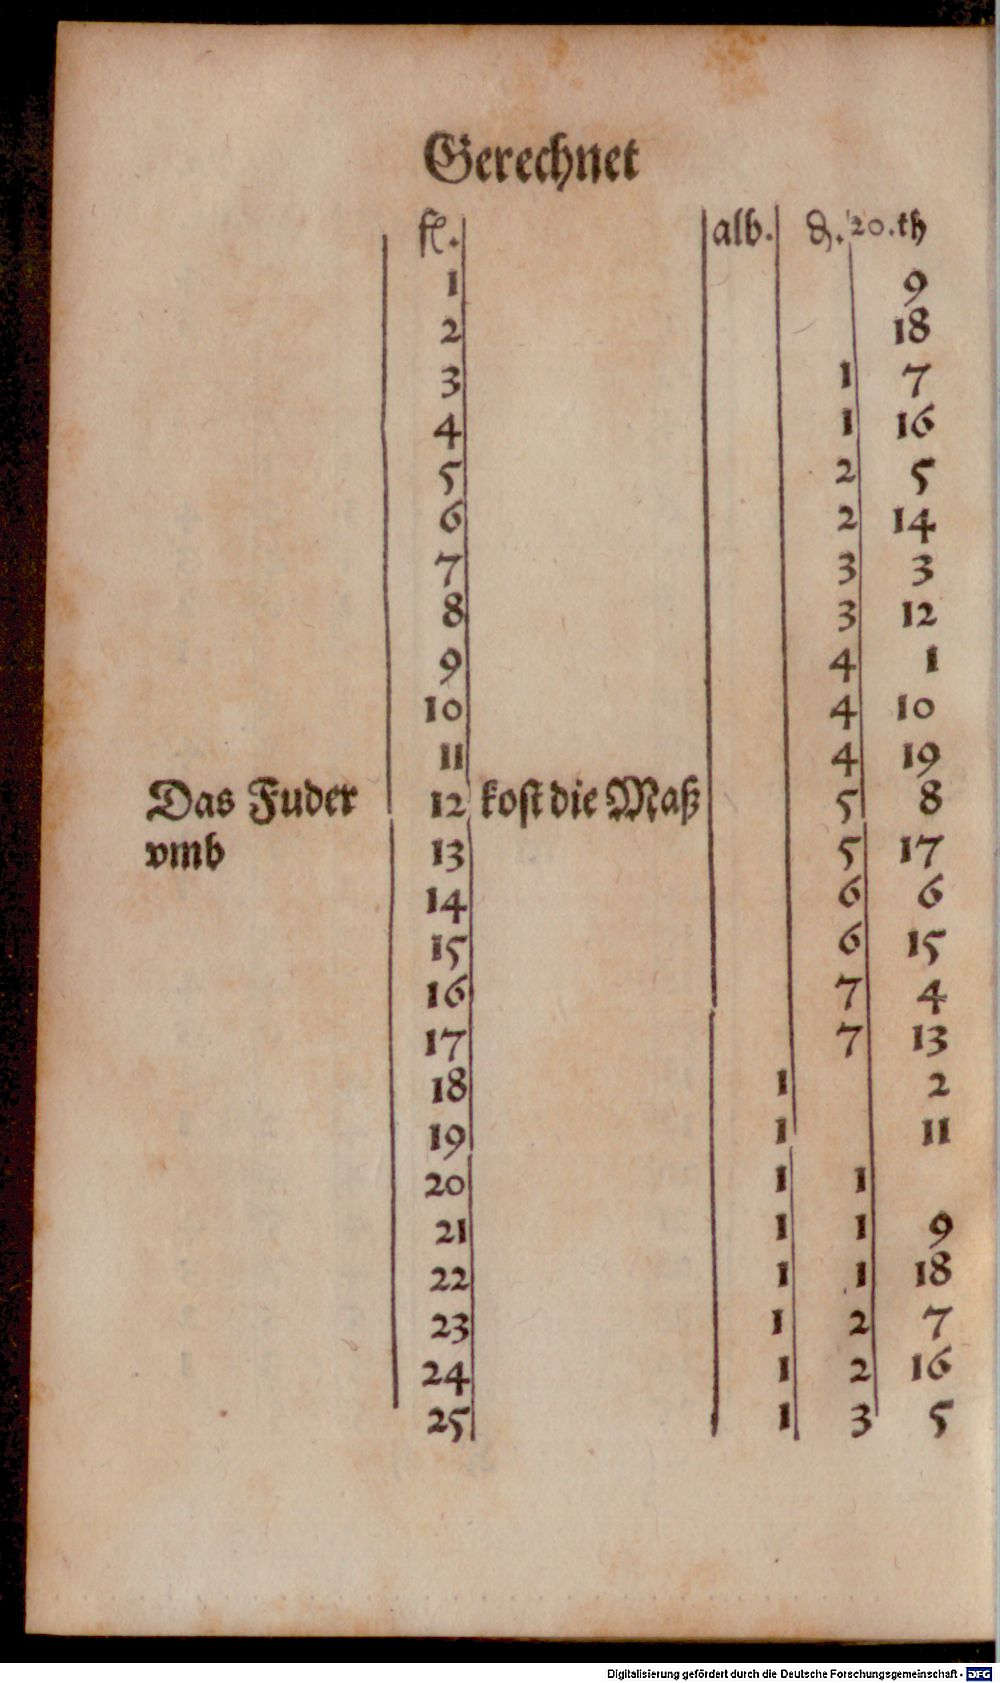 Gerechnet
fl. alb. ₰. 20.th
1 9
2 18
3 1 7
4 1 16
5 2 5
6 2 14
7 3 3
8 3 12
9 4 1
10 4 10
11 4 19
Das Fuder 12 kost die Maß 5 8
vmb 13 5 17
14 6 6
15 6 15
16 7 4
17 7 13
18 1 2
19 1 11
20 1 1
21 1 1 9
22 1 1 18
23 1 2 7
24 1 2 16
25 1 3 5
Digitalisierung gefördert durch die Deutsche Forschungsgemeinschaft - DFG